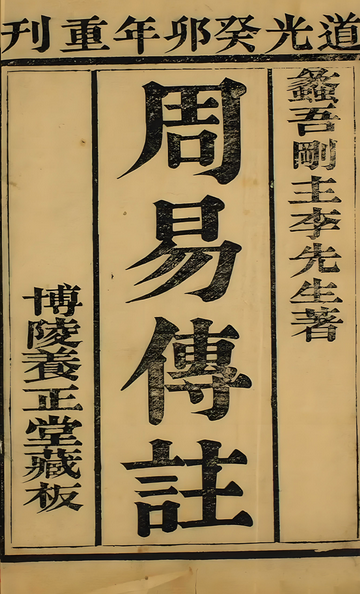 道光癸卯年重刊
蠡吾剛主李先生著
周易傳註
博陵養正堂藏板